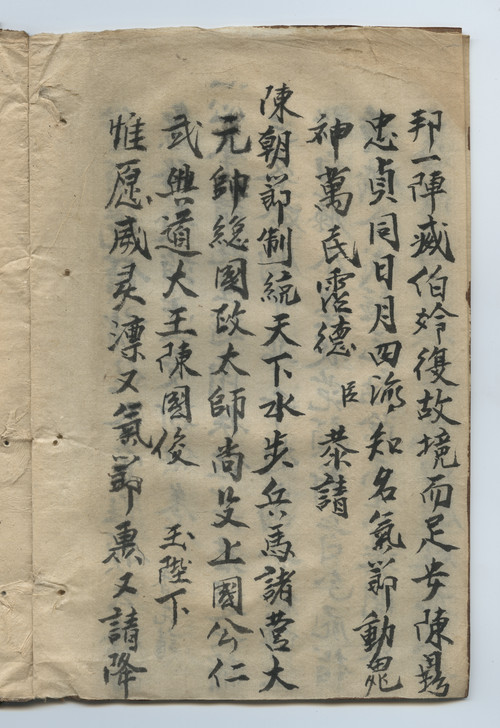 邦一陣滅伯姈復故境而足步陳鼂
忠貞同日月四海知名氣節動鬼
神萬民霑德臣 恭請
陳朝節制統天下水步兵馬諸营大
元帥總國政太師尚父上國公仁
武興道大王陳國俊 玉陛下
惟愿威灵凛又氣節熏又請降